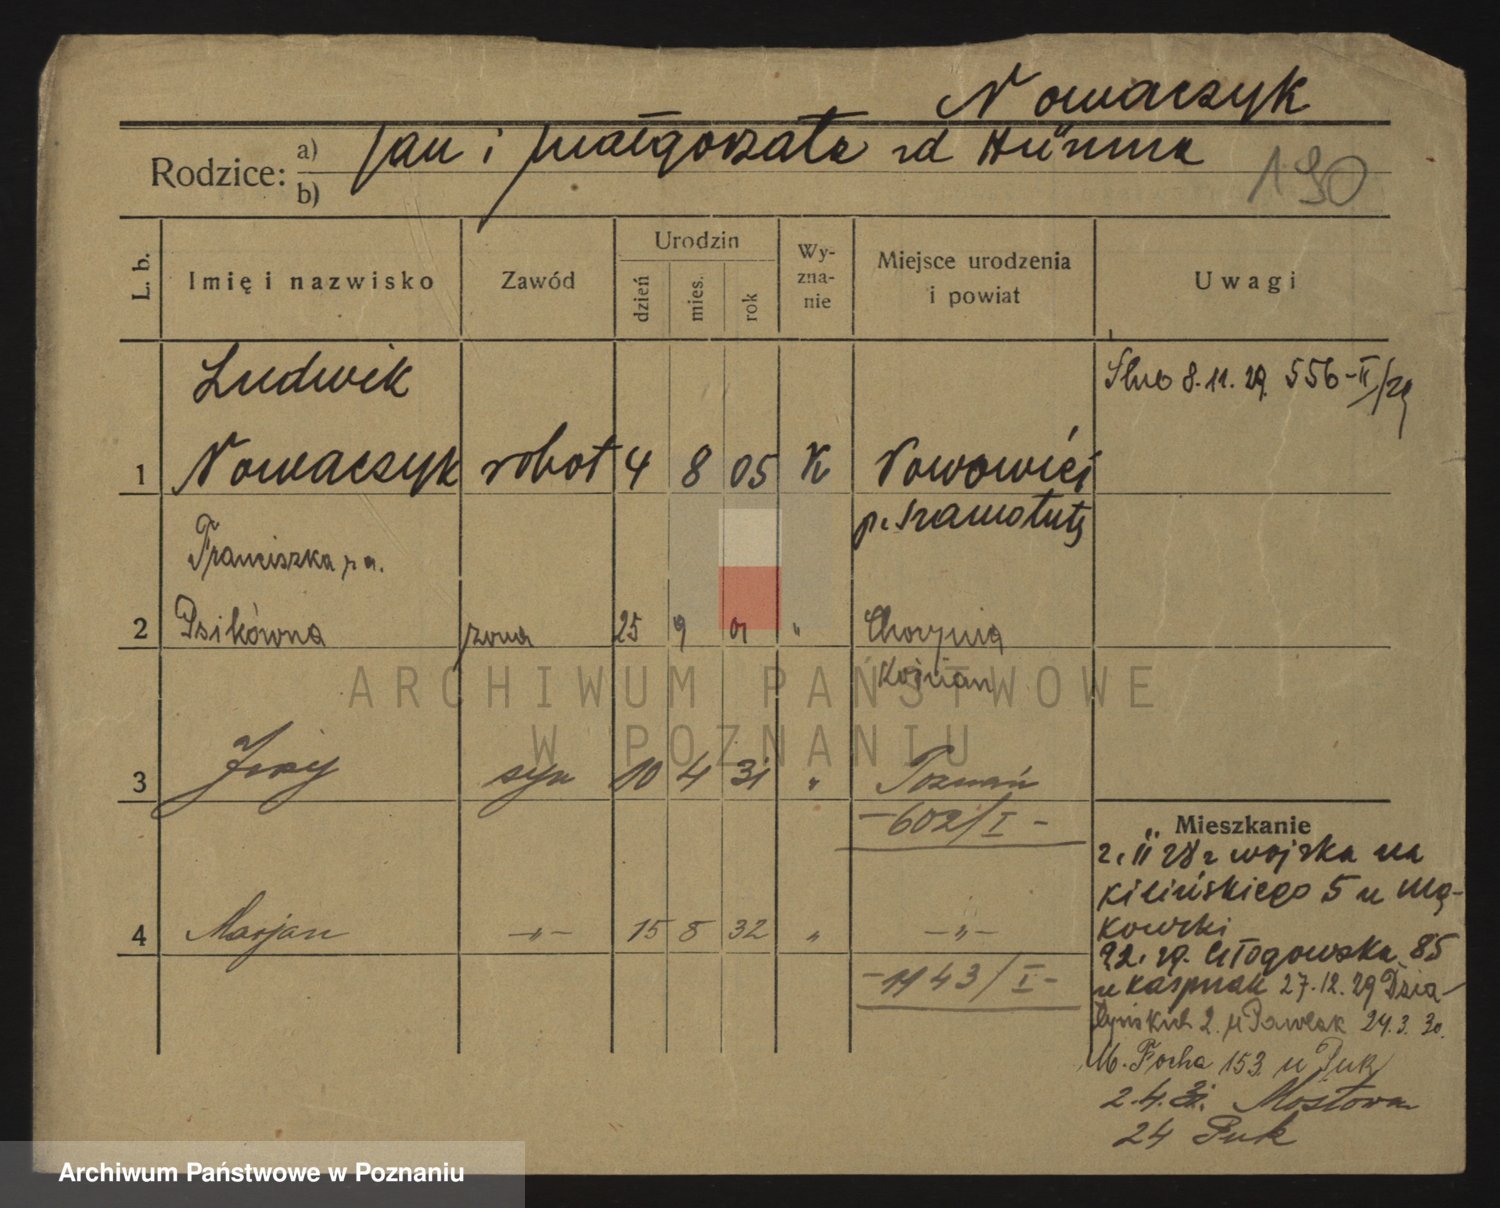 Nowaczyk
Rodzice: a) Jan i Małgorzata rd
b)
190
L. b.
Imię i nazwisko
Zawód
Urodzin
dzień
mies.
rok
Wy-
zna-
nie
Miejsce urodzenia
i powiat
Uwagi
Ludwik
Ślub 8.11.29. 556-II/29
1 Nowaczyk robot 4 8 05 K Nowowieś
p. Szamotuły
Franciszka
2 Psikówna żona 25 9 " Chorynia
Kościan
3 Jerzy syn 10 4 31 " Poznań
-602/I-
4 Marjan -"- 15 8 32 " -"-
-1143/I-
Mieszkanie
2. II 28 z wojska na
Kilińskiego 5 u Mą-
kowski
29. Głogowska 85
u Kasprzak 27.12.29 Dzia-
łyńskich 2. u Pawlak 24.3.30.
M. Focha 153 u Puk
2.4.31. Mostowa
24 Puk
ARCHIWUM PAŃSTWOWE
W POZNANIU
Archiwum Państwowe w Poznaniu